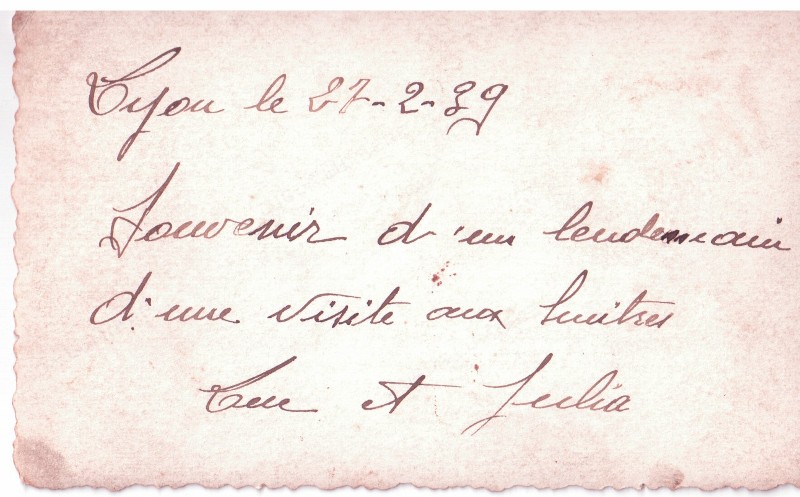 Lyon le 27-2-39
Souvenir d'un lendemain
d'une visite aux huitres
Luc et Julia